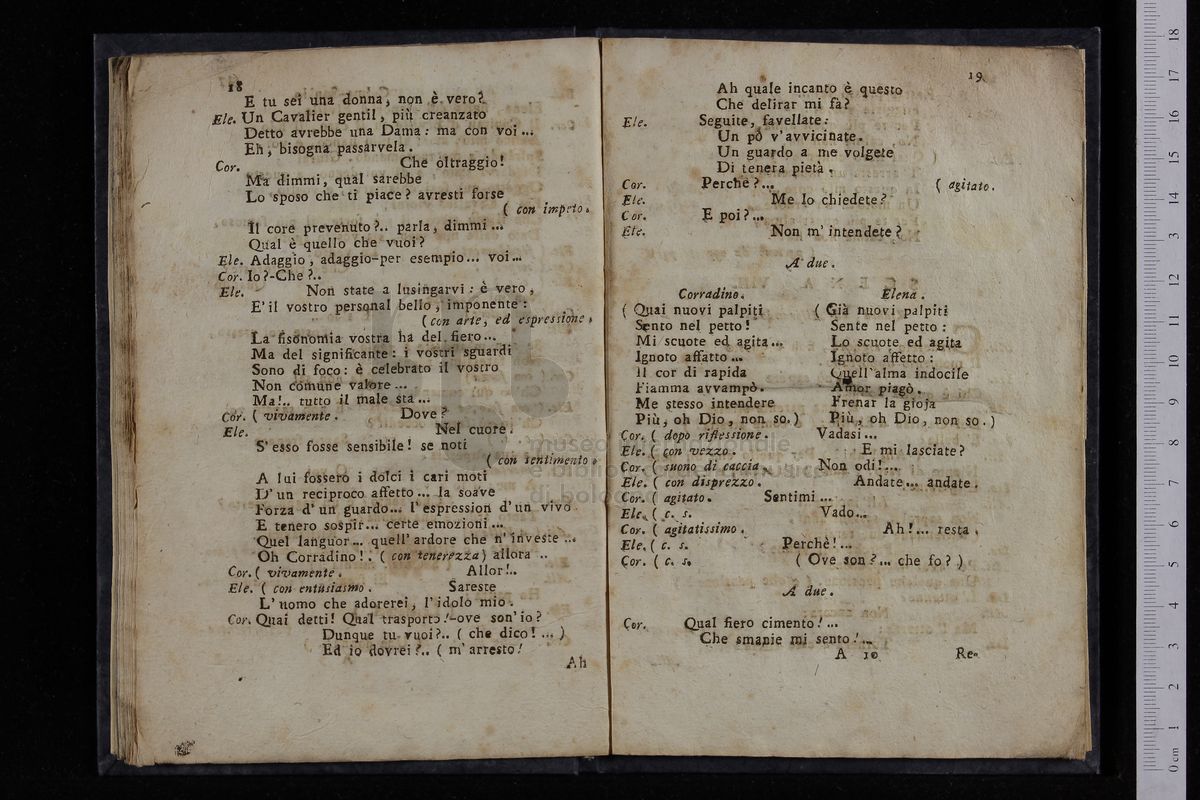 18
E tu sei una donna, non è vero?
Ele. Un Cavalier gentil, più creanzato
Detto avrebbe una Dama: ma con voi...
Eh, bisogna passarvela.
Cor. Che oltraggio!
Ma dimmi, qual sarebbe
Lo sposo che ti piace? avresti forse
( con impeto.
Il core prevenuto?.. parla, dimmi...
Qual è quello che vuoi?
Ele. Adaggio, adaggio-per esempio... voi...
Cor. Io?-Che?..
Ele. Non state a lusingarvi: è vero,
E' il vostro personal bello, imponente:
(con arte, ed espressione.
La fisonomia vostra ha del fiero...
Ma del significante: i vostri sguardi
Sono di foco: è celebrato il vostro
Non comune valore...
Ma!.. tutto il male sta...
Cor. ( vivamente. Dove?
Ele. Nel cuore.
S' esso fosse sensibile! se noti
( con sentimento.
A lui fossero i dolci i cari moti
D' un reciproco affetto... la soave
Forza d' un guardo... l' espression d' un vivo
E tenero sospir... certe emozioni...
Quel languor... quell' ardore che n' investe...
Oh Corradino!. ( con tenerezza) allora ..
Cor. ( vivamente. Allor!..
Ele. ( con entusiasmo. Sareste
L' uomo che adorerei, l' idolo mio.
Cor. Quai detti! Qual trasporto!-ove son' io?
Dunque tu vuoi?.. ( che dico!... )
Ed io dovrei?.. ( m' arresto!
Ah
19
Ah quale incanto è questo
Che delirar mi fà?
Ele. Seguite, favellate:
Un pò v' avvicinate.
Un guardo a me volgete
Di tenera pietà.
Cor. Perchè?... ( agitato.
Ele. Me lo chiedete?
Cor. E poi?...
Ele. Non m' intendete?
A due.
Corradino.
( Quai nuovi palpiti
Sento nel petto!
Mi scuote ed agita...
Ignoto affatto...
Il cor di rapida
Fiamma avvampò.
Me stesso intendere
Più, oh Dio, non so.)
Elena.
( Già nuovi palpiti
Sente nel petto:
Lo scuote ed agita
Ignoto affetto:
Quell'alma indocile
Amor piagò.
Frenar la gioja
Più, oh Dio, non so.)
Cor. ( dopo riflessione. Vadasi...
Ele. ( con vezzo. E mi lasciate?
Cor. ( suono di caccia. Non odi!...
Ele. ( con disprezzo. Andate... andate.
Cor. ( agitato. Sentimi...
Ele. ( c. s. Vado...
Cor. ( agitatissimo. Ah!... resta.
Ele. ( c. s. Perchè!...
Cor. ( c. s. ( Ove son?... che fo? )
A due.
Cor. Qual fiero cimento!...
Che smanie mi sento!...
A 10 Re-
museo internazionale
e biblioteca della musica
di bologna
0 cm 1 2 3 4 5 6 7 8 9 10 11 12 13 14 15 16 17 18